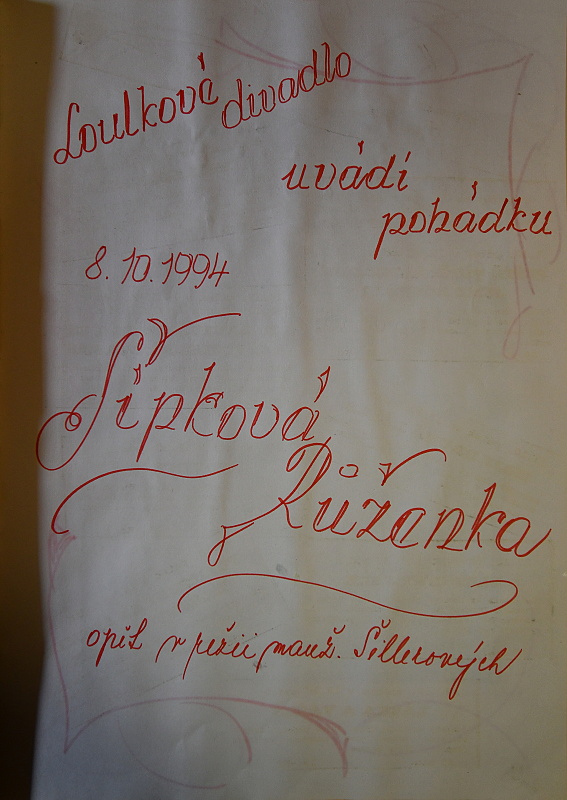 Loulkové divadlo
uvádí
pohádku
8.10.1994
Šípková
Růženka
opět v režii manž. Šillerových